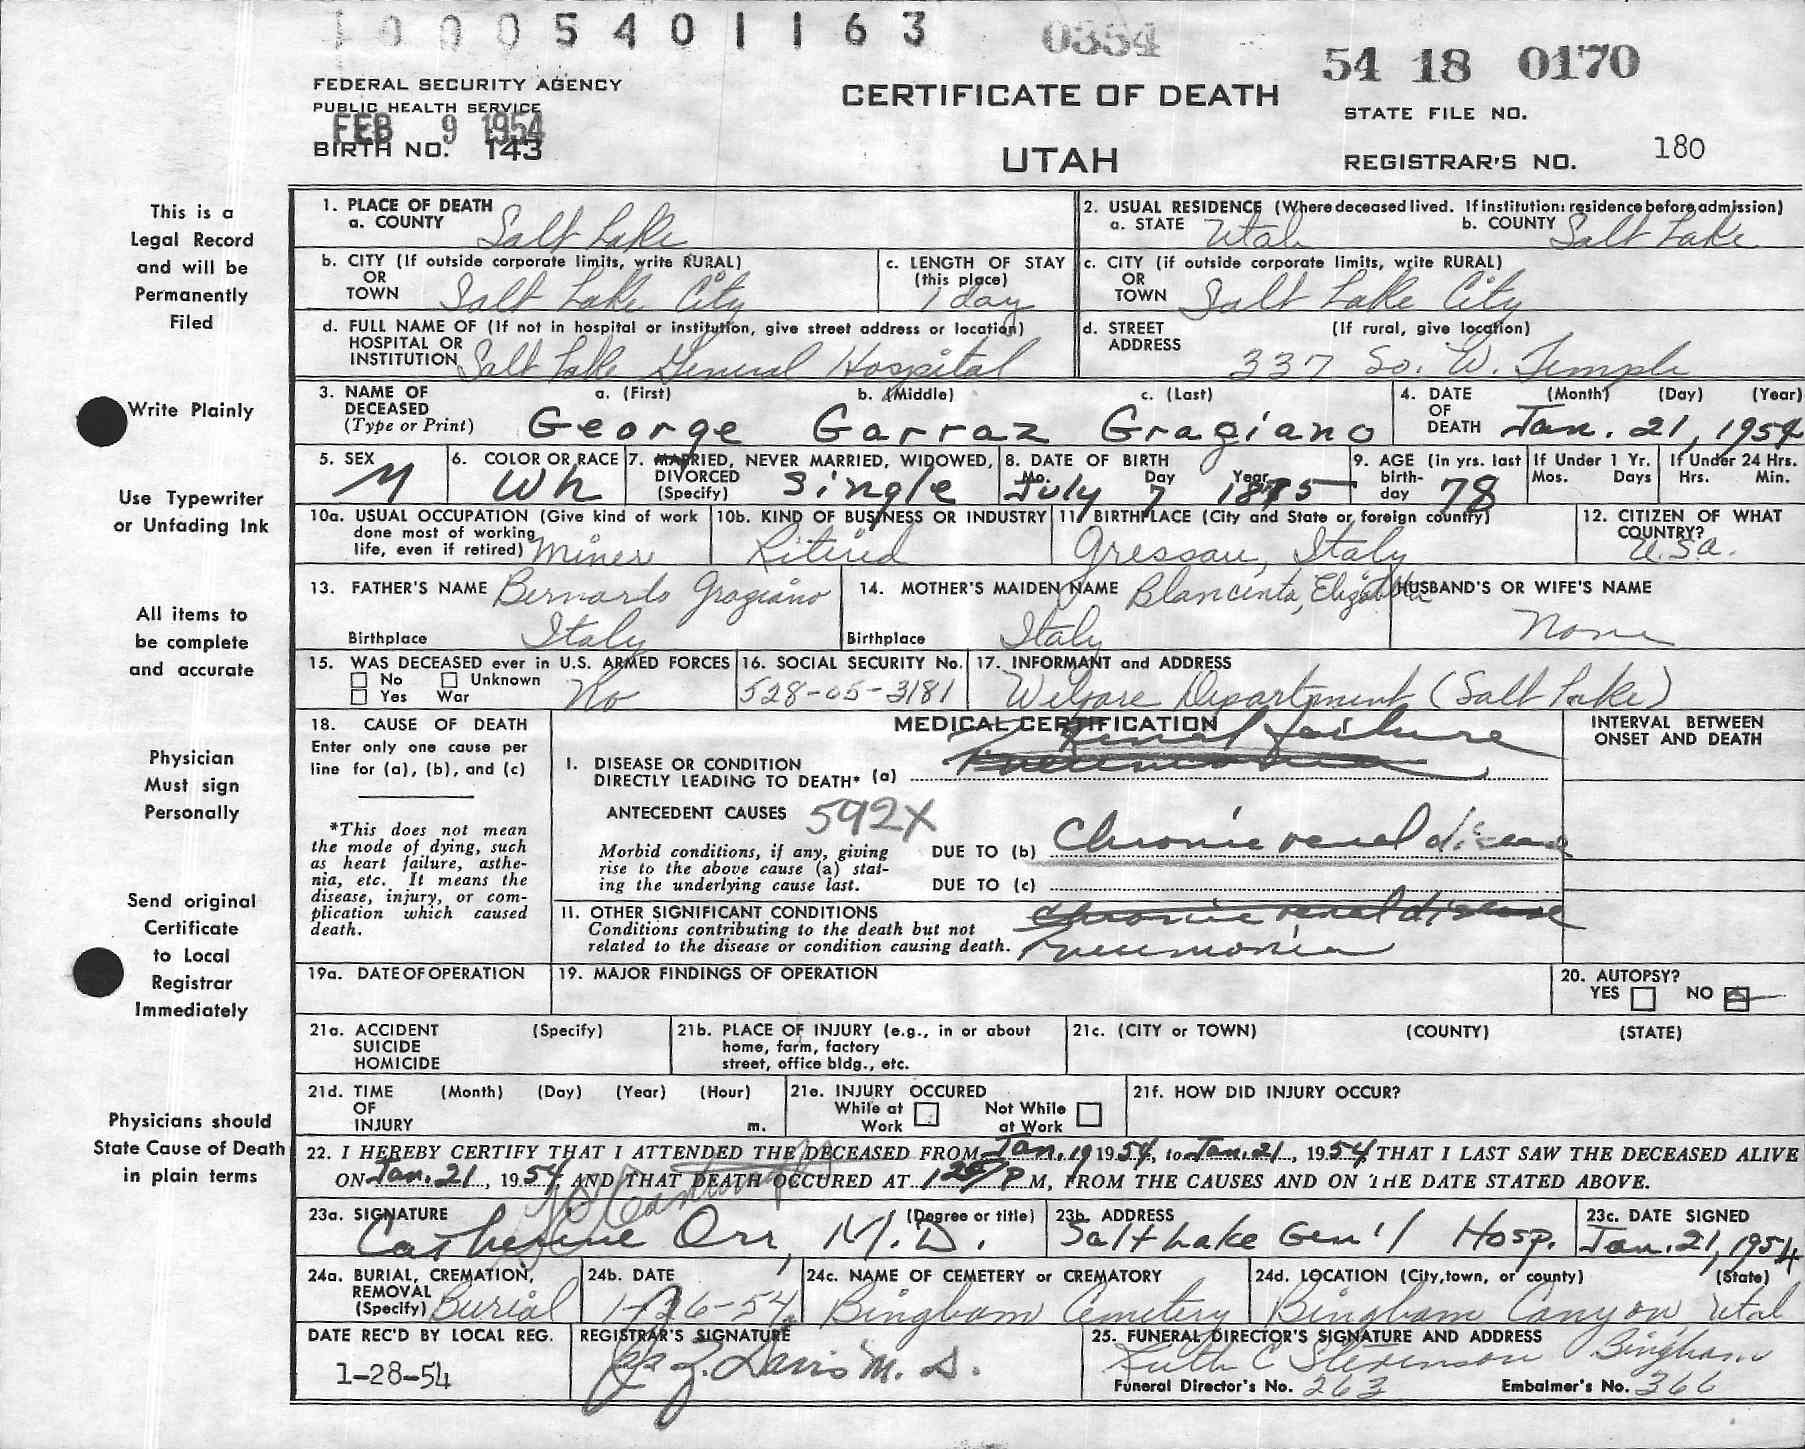 1 0 0 0 5 4 0 1 1 6 3 0354 54 18 0170
FEDERAL SECURITY AGENCY
PUBLIC HEALTH SERVICE
FEB 9 1954
BIRTH NO. 143
CERTIFICATE OF DEATH
UTAH
STATE FILE NO.
REGISTRAR'S NO. 180
This is a
Legal Record
and will be
Permanently
Filed
Write Plainly
Use Typewriter
or Unfading Ink
All items to
be complete
and accurate
Physician
Must sign
Personally
Send original
Certificate
to Local
Registrar
Immediately
Physicians should
State Cause of Death
in plain terms
1. PLACE OF DEATH
a. COUNTY Salt Lake
2. USUAL RESIDENCE (Where deceased lived. If institution: residence before admission)
a. STATE Utah b. COUNTY Salt Lake
b. CITY (If outside corporate limits, write RURAL)
OR
TOWN Salt Lake City
c. LENGTH OF STAY
(this place)
1 day
c. CITY (if outside corporate limits, write RURAL)
OR
TOWN Salt Lake City
d. FULL NAME OF (If not in hospital or institution, give street address or location)
HOSPITAL OR
INSTITUTION Salt Lake General Hospital
d. STREET (If rural, give location)
ADDRESS 337 So. W. Temple
3. NAME OF a. (First) b. (Middle) c. (Last)
DECEASED
(Type or Print) George Garraz Gragiano
4. DATE (Month) (Day) (Year)
OF
DEATH Jan. 21, 1954
5. SEX
M
6. COLOR OR RACE
Wh
7. MARRIED, NEVER MARRIED, WIDOWED,
DIVORCED
(Specify) Single
8. DATE OF BIRTH
Mo. Day Year
July 7 1875
9. AGE (in yrs. last
birth-
day 78
If Under 1 Yr.
Mos. Days
If Under 24 Hrs.
Hrs. Min.
10a. USUAL OCCUPATION (Give kind of work
done most of working
life, even if retired) Miner
10b. KIND OF BUSINESS OR INDUSTRY
Retired
11. BIRTHPLACE (City and State or foreign country)
Gressau, Italy
12. CITIZEN OF WHAT
COUNTRY?
U.S.A.
13. FATHER'S NAME Bernardo Gragiano
Birthplace Italy
14. MOTHER'S MAIDEN NAME Blancinta, Elizabeth
Birthplace Italy
HUSBAND'S OR WIFE'S NAME
None
15. WAS DECEASED ever in U.S. ARMED FORCES
No Unknown
Yes War No
16. SOCIAL SECURITY No.
528-05-3181
17. INFORMANT and ADDRESS
Welfare Department (Salt Lake)
18. CAUSE OF DEATH
Enter only one cause per
line for (a), (b), and (c)
*This does not mean
the mode of dying, such
as heart failure, asthe-
nia, etc. It means the
disease, injury, or com-
plication which caused
death.
MEDICAL CERTIFICATION
Renal failure
I. DISEASE OR CONDITION
DIRECTLY LEADING TO DEATH* (a) Pneumonia
ANTECEDENT CAUSES 592X
Morbid conditions, if any, giving
rise to the above cause (a) stat-
ing the underlying cause last.
DUE TO (b) Chronic renal disease
DUE TO (c)
II. OTHER SIGNIFICANT CONDITIONS
Conditions contributing to the death but not
related to the disease or condition causing death.
Chronic renal disease
Pneumonia
INTERVAL BETWEEN
ONSET AND DEATH
19a. DATE OF OPERATION
19. MAJOR FINDINGS OF OPERATION
20. AUTOPSY?
YES NO
21a. ACCIDENT (Specify)
SUICIDE
HOMICIDE
21b. PLACE OF INJURY (e.g., in or about
home, farm, factory
street, office bldg., etc.
21c. (CITY or TOWN) (COUNTY) (STATE)
21d. TIME (Month) (Day) (Year) (Hour)
OF
INJURY m.
21e. INJURY OCCURED
While at Not While
Work at Work
21f. HOW DID INJURY OCCUR?
22. I HEREBY CERTIFY THAT I ATTENDED THE DECEASED FROM Jan. 19 1954, to Jan. 21, 1954 THAT I LAST SAW THE DECEASED ALIVE
ON Jan. 21, 1954, AND THAT DEATH OCCURED AT 120 P M, FROM THE CAUSES AND ON THE DATE STATED ABOVE.
23a. SIGNATURE (Degree or title)
Catherine Orr, M.D.
23b. ADDRESS
Salt Lake Gen'l Hosp.
23c. DATE SIGNED
Jan. 21, 1954
24a. BURIAL, CREMATION,
REMOVAL
(Specify) Burial
24b. DATE
1-26-54
24c. NAME OF CEMETERY or CREMATORY
Bingham Cemetery
24d. LOCATION (City, town, or county) (State)
Bingham Canyon, Utah
DATE REC'D BY LOCAL REG.
1-28-54
REGISTRAR'S SIGNATURE
Davis M. D.
25. FUNERAL DIRECTOR'S SIGNATURE AND ADDRESS
Ruth C Stevenson Bingham
Funeral Director's No. 263 Embalmer's No. 366